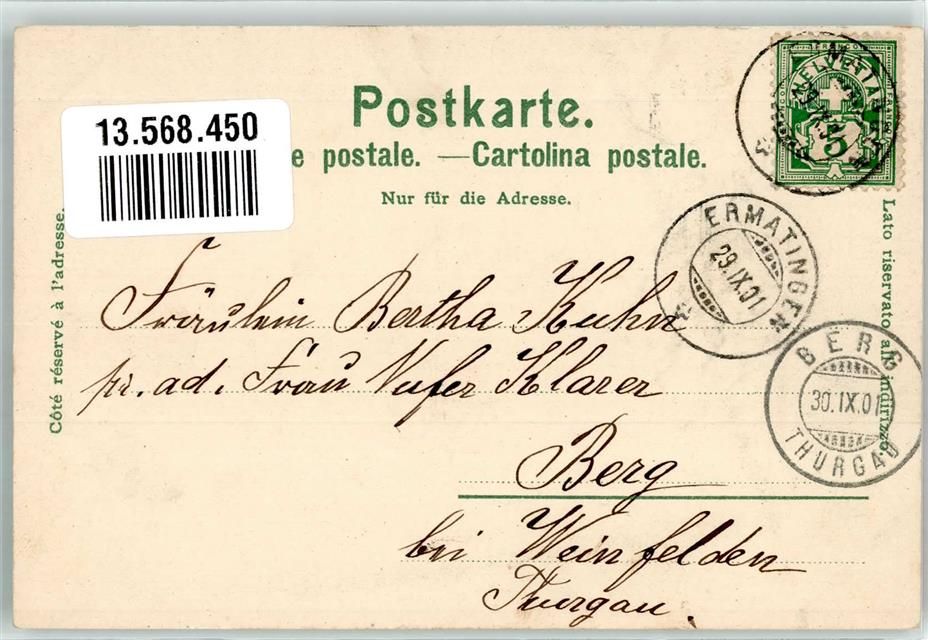 13.568.450
Postkarte.
e postale. — Cartolina postale.
Nur für die Adresse.
Côté réservé à l'adresse.
Lato riservato all'indirizzo.
HELVETIA
FRANCO
5
ERMATINGEN
29.IX.01
BERG
30.IX.01
THURGAU
Fräulein Bertha Kuhn
pr. ad. Frau Klarer
Berg
bei Weinfelden
Thurgau.